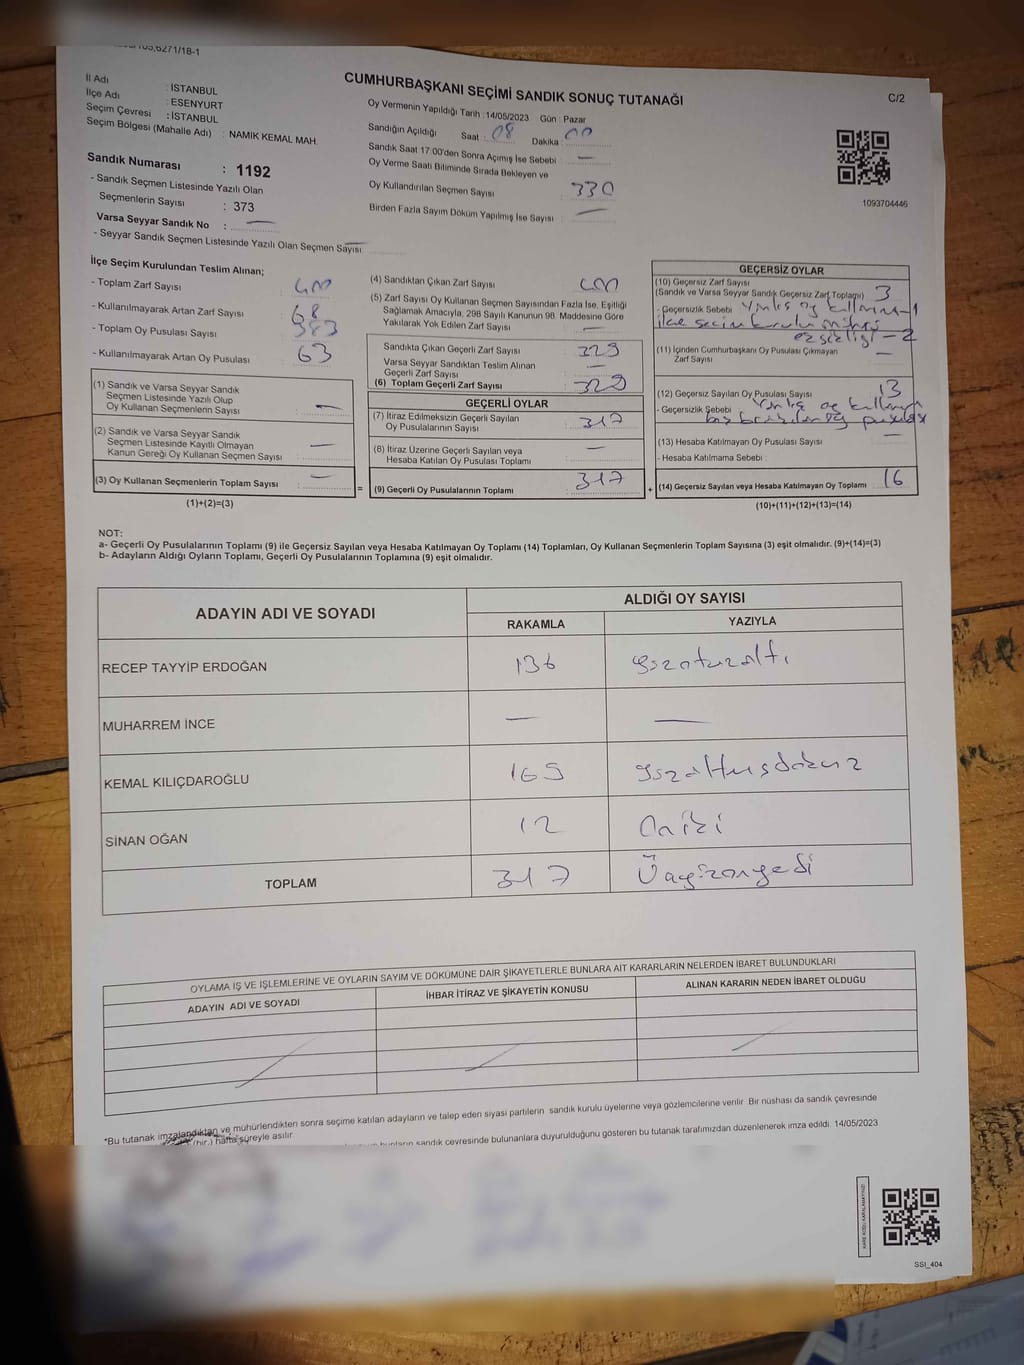 CUMHURBAŞKANI SEÇİMİ SANDIK SONUÇ TUTANAĞI
C/2
İl Adı : İSTANBUL
İlçe Adı : ESENYURT
Seçim Çevresi : İSTANBUL
Seçim Bölgesi (Mahalle Adı) : NAMIK KEMAL MAH.
Sandık Numarası : 1192
- Sandık Seçmen Listesinde Yazılı Olan
Seçmenlerin Sayısı : 373
Varsa Seyyar Sandık No : —
- Seyyar Sandık Seçmen Listesinde Yazılı Olan Seçmen Sayısı —
Oy Vermenin Yapıldığı Tarih : 14/05/2023 Gün : Pazar
Sandığın Açıldığı Saat : 08 Dakika : 00
Sandık Saat 17:00'den Sonra Açımış İse Sebebi : —
Oy Verme Saati Bitiminde Sırada Bekleyen ve
Oy Kullandırılan Seçmen Sayısı : 330
Birden Fazla Sayım Döküm Yapılmış İse Sayısı : —
1093704446
İlçe Seçim Kurulundan Teslim Alınan;
- Toplam Zarf Sayısı : 400
- Kullanılmayarak Artan Zarf Sayısı : 68
- Toplam Oy Pusulası Sayısı : 383
- Kullanılmayarak Artan Oy Pusulası : 63
(1) Sandık ve Varsa Seyyar Sandık
Seçmen Listesinde Yazılı Olup
Oy Kullanan Seçmenlerin Sayısı : —
(2) Sandık ve Varsa Seyyar Sandık
Seçmen Listesinde Kayıtlı Olmayan
Kanun Gereği Oy Kullanan Seçmen Sayısı : —
(3) Oy Kullanan Seçmenlerin Toplam Sayısı : —
(1)+(2)=(3)
=
(4) Sandıktan Çıkan Zarf Sayısı : 400
(5) Zarf Sayısı Oy Kullanan Seçmen Sayısından Fazla İse, Eşitliği
Sağlamak Amacıyla, 298 Sayılı Kanunun 98. Maddesine Göre
Yakılarak Yok Edilen Zarf Sayısı : —
Sandıkta Çıkan Geçerli Zarf Sayısı : 329
Varsa Seyyar Sandıktan Teslim Alınan
Geçerli Zarf Sayısı : —
(6) Toplam Geçerli Zarf Sayısı : 329
GEÇERLİ OYLAR
(7) İtiraz Edilmeksizin Geçerli Sayılan
Oy Pusulalarının Sayısı : 317
(8) İtiraz Üzerine Geçerli Sayılan veya
Hesaba Katılan Oy Pusulası Toplamı : —
(9) Geçerli Oy Pusulalarının Toplamı : 317
+
GEÇERSİZ OYLAR
(10) Geçersiz Zarf Sayısı
(Sandık ve Varsa Seyyar Sandık Geçersiz Zarf Toplamı) : 3
- Geçersizlik Sebebi : Yanlış oy kullanma-1
ilçe seçim kurulu mührü
eksikliği - 2
(11) İçinden Cumhurbaşkanı Oy Pusulası Çıkmayan
Zarf Sayısı : —
(12) Geçersiz Sayılan Oy Pusulası Sayısı : 13
- Geçersizlik Sebebi : Yanlış oy kullanma
boş bırakılan oy pusulası
(13) Hesaba Katılmayan Oy Pusulası Sayısı : —
- Hesaba Katılmama Sebebi :
(14) Geçersiz Sayılan veya Hesaba Katılmayan Oy Toplamı : 16
(10)+(11)+(12)+(13)=(14)
NOT:
a- Geçerli Oy Pusulalarının Toplamı (9) ile Geçersiz Sayılan veya Hesaba Katılmayan Oy Toplamı (14) Toplamları, Oy Kullanan Seçmenlerin Toplam Sayısına (3) eşit olmalıdır. (9)+(14)=(3)
b- Adayların Aldığı Oyların Toplamı, Geçerli Oy Pusulalarının Toplamına (9) eşit olmalıdır.
ADAYIN ADI VE SOYADI
ALDIĞI OY SAYISI
RAKAMLA YAZIYLA
RECEP TAYYİP ERDOĞAN 136 yüzotuzaltı
MUHARREM İNCE — —
KEMAL KILIÇDAROĞLU 169 yüzaltmışdokuz
SİNAN OĞAN 12 Oniki
TOPLAM 317 Üçyüzonyedi
OYLAMA İŞ VE İŞLEMLERİNE VE OYLARIN SAYIM VE DÖKÜMÜNE DAİR ŞİKAYETLERLE BUNLARA AİT KARARLARIN NELERDEN İBARET BULUNDUKLARI
ADAYIN ADI VE SOYADI İHBAR İTİRAZ VE ŞİKAYETİN KONUSU ALINAN KARARIN NEDEN İBARET OLDUĞU
*Bu tutanak imzalandıktan ve mühürlendikten sonra seçime katılan adayların ve talep eden siyasi partilerin sandık kurulu üyelerine veya gözlemcilerine verilir. Bir nüshası da sandık çevresinde
(bir) hafta süreyle asılır.
bunların sandık çevresinde bulunanlara duyurulduğunu gösteren bu tutanak tarafımızdan düzenlenerek imza edildi. 14/05/2023
KARE KODU KARALAMAYINIZ!
SSI_404